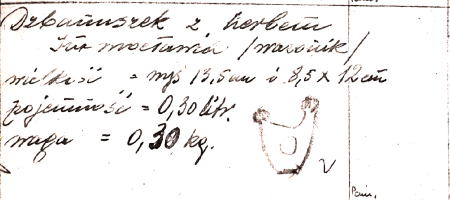 Dzbanuszek z herbem
/warownik/
wielkość = wys 13,5 cm i 8,5 x 12 cm
pojemność = 0,30 litr.
waga = 0,30 kg.